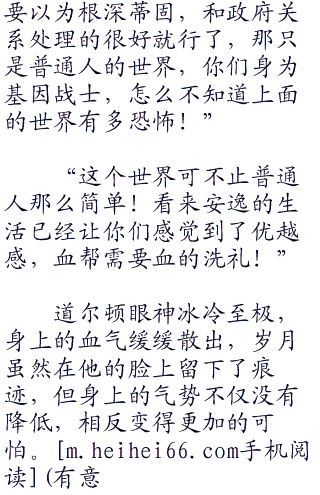 要以为根深蒂固，和政府关
系处理的很好就行了，那只
是普通人的世界，你们身为
基因战士，怎么不知道上面
的世界有多恐怖！”
“这个世界可不止普通
人那么简单！看来安逸的生
活已经让你们感觉到了优越
感，血帮需要血的洗礼！”
道尔顿眼神冰冷至极，
身上的血气缓缓散出，岁月
虽然在他的脸上留下了痕
迹，但身上的气势不仅没有
降低，相反变得更加的可
怕。[m.heihei66.com手机阅
读](有意